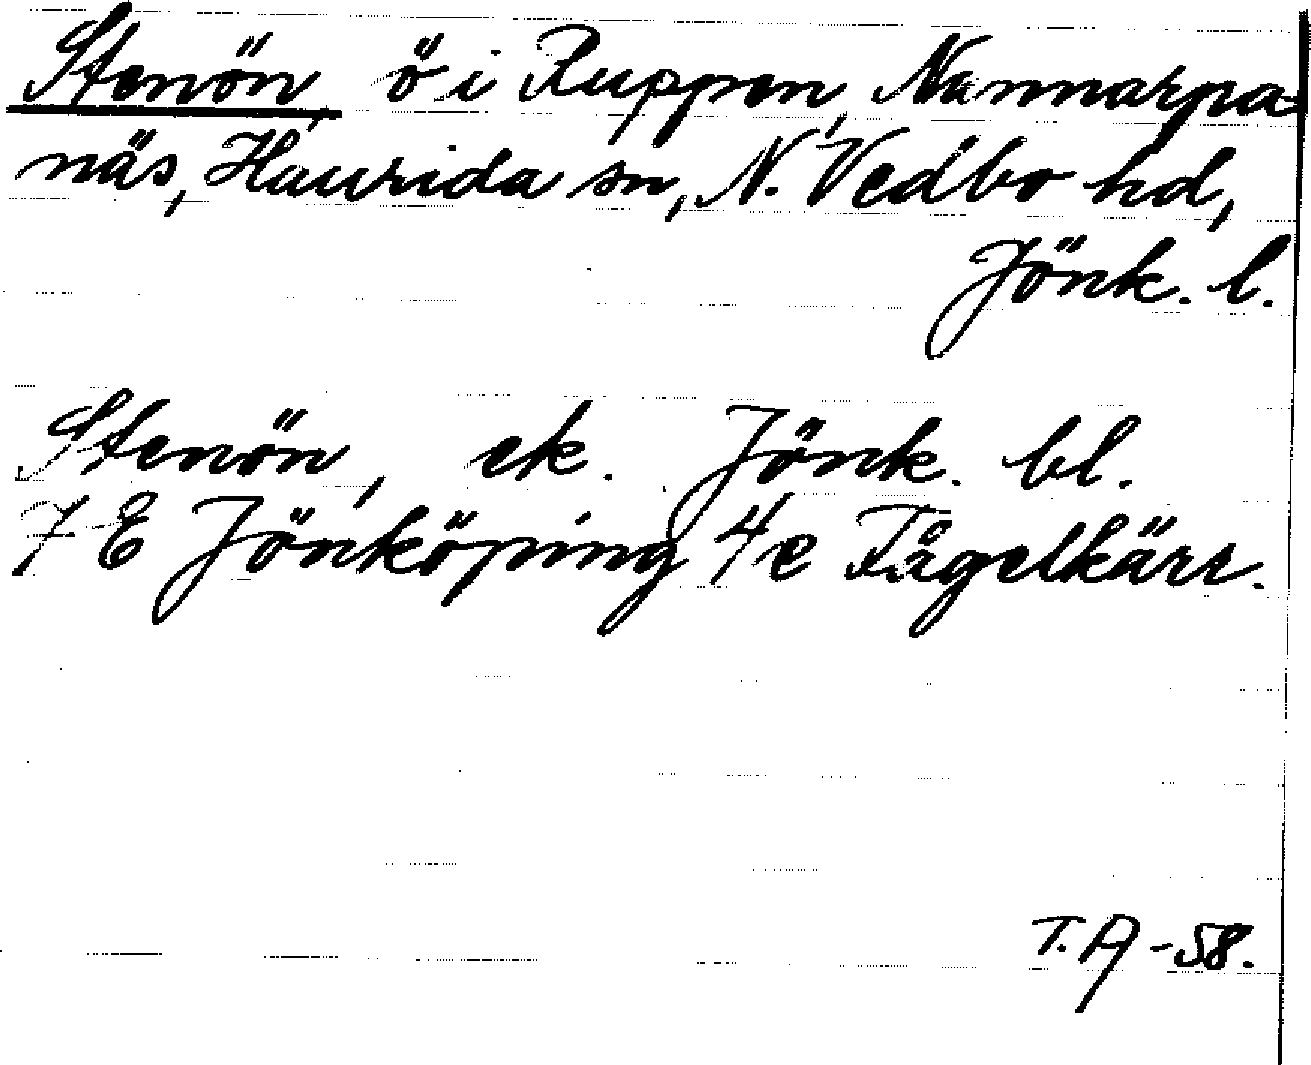 Stenön, ö i Ruppen, Nannarpa-
näs, Haurida sn, N. Vedbo hd,
Jönk. l.
Stenön, ek. Jönk. bl.
7 E Jönköping 4e Fågelkärr.
T. A -58.